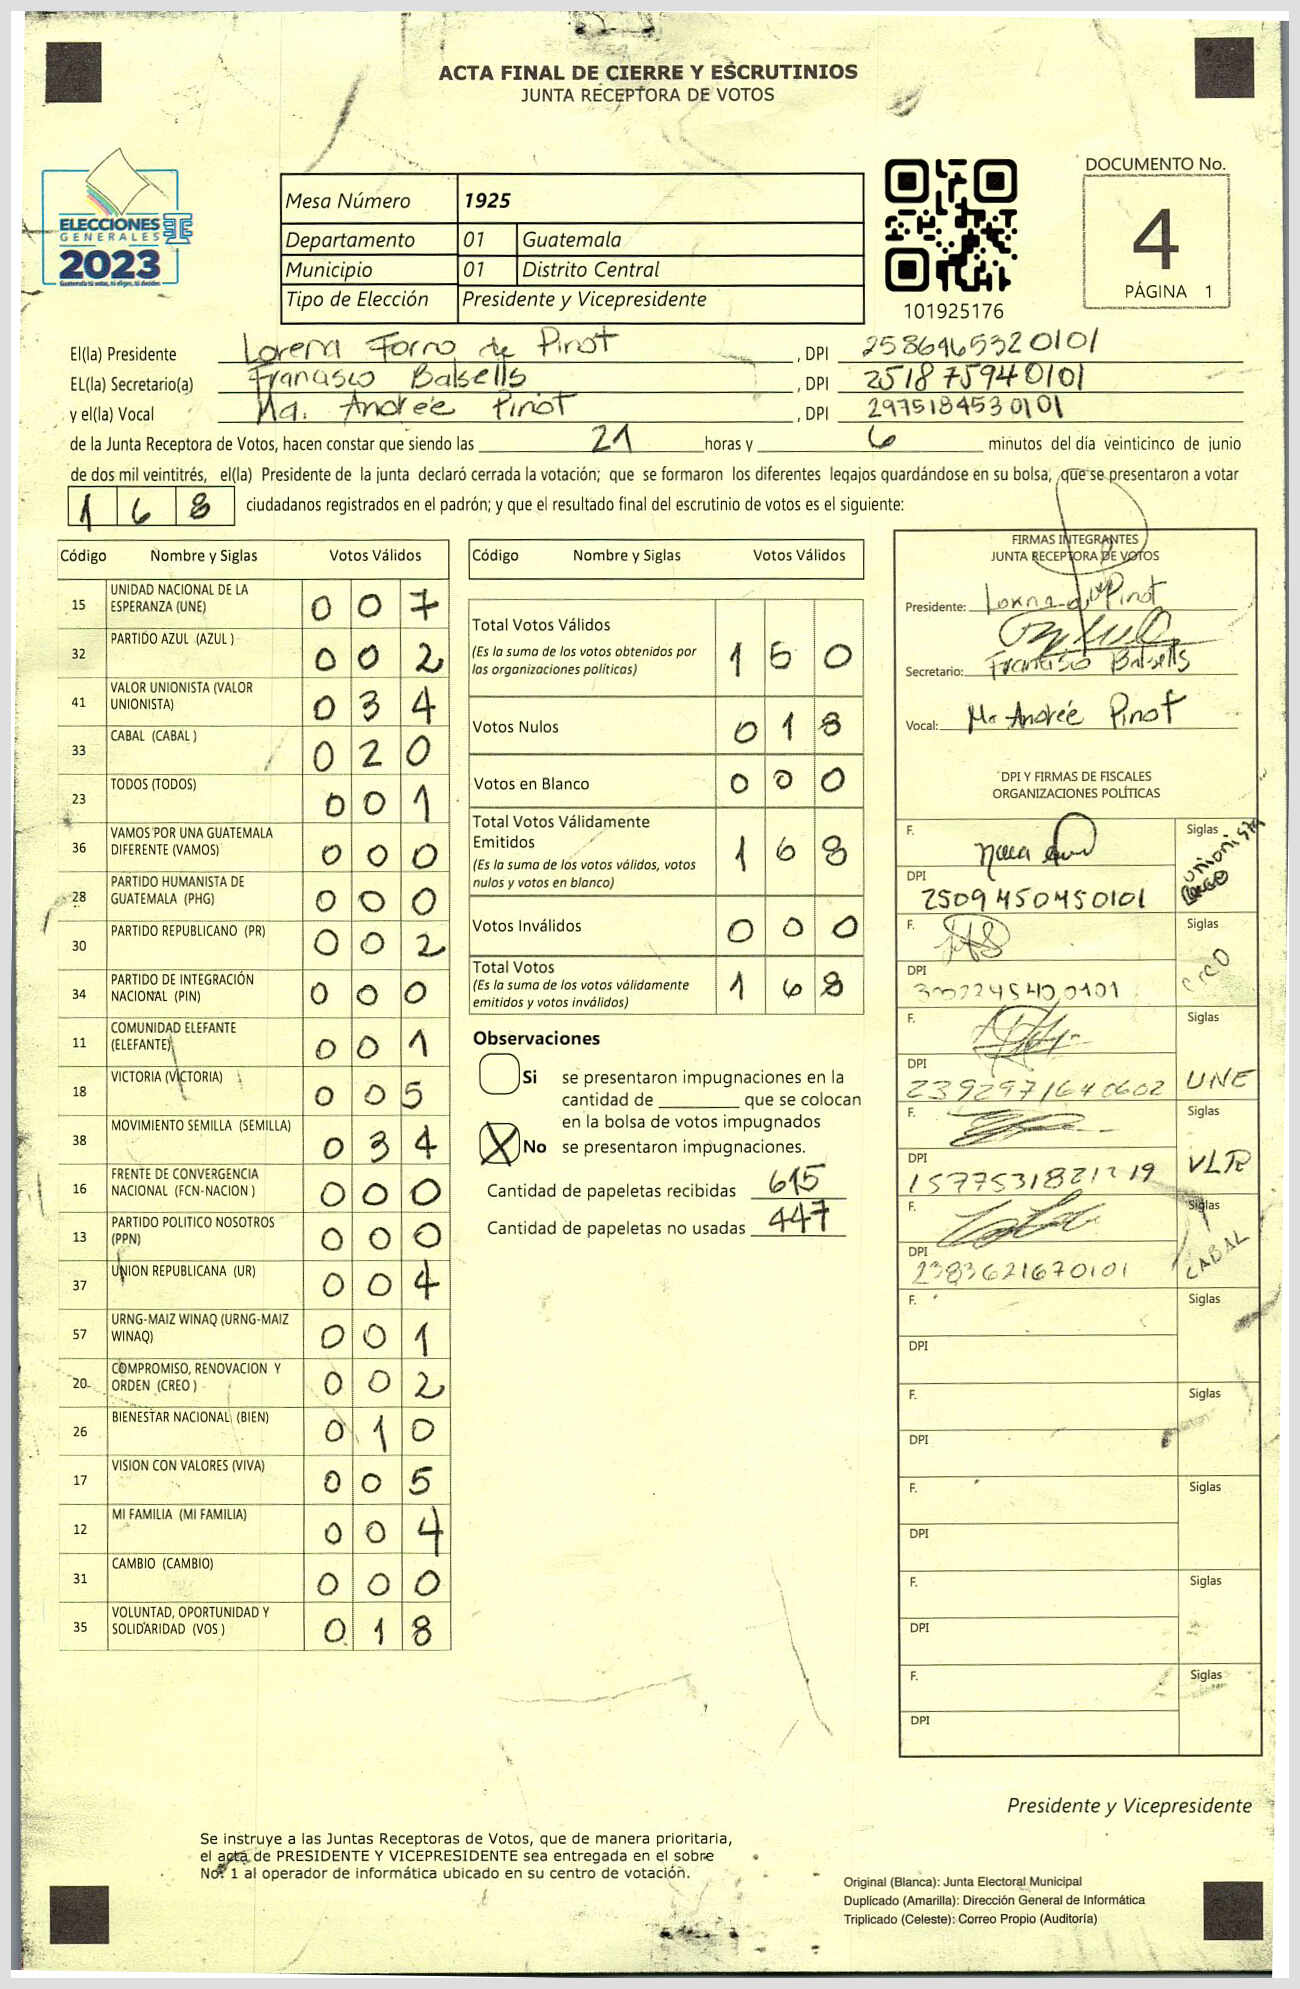 ACTA FINAL DE CIERRE Y ESCRUTINIOS
JUNTA RECEPTORA DE VOTOS
ELECCIONES
GENERALES
2023
Guatemala tú votas, tú eliges, tú decides
Mesa Número 1925
Departamento 01 Guatemala
Municipio 01 Distrito Central
Tipo de Elección Presidente y Vicepresidente
101925176
DOCUMENTO No.
4
PÁGINA 1
El(la) Presidente Lorena Forno de Pinot, DPI 2586465320101
EL(la) Secretario(a) Francisco Balsells, DPI 251875940101
y el(la) Vocal Ma. Andreé Pinot, DPI 2975184530101
de la Junta Receptora de Votos, hacen constar que siendo las 21 horas y 6 minutos del día veinticinco de junio
de dos mil veintitrés, el(la) Presidente de la junta declaró cerrada la votación; que se formaron los diferentes legajos guardándose en su bolsa, que se presentaron a votar
168 ciudadanos registrados en el padrón; y que el resultado final del escrutinio de votos es el siguiente:
Código Nombre y Siglas Votos Válidos
15 UNIDAD NACIONAL DE LA ESPERANZA (UNE) 007
32 PARTIDO AZUL (AZUL ) 002
41 VALOR UNIONISTA (VALOR UNIONISTA) 034
33 CABAL (CABAL ) 020
23 TODOS (TODOS) 001
36 VAMOS POR UNA GUATEMALA DIFERENTE (VAMOS) 000
28 PARTIDO HUMANISTA DE GUATEMALA (PHG) 000
30 PARTIDO REPUBLICANO (PR) 002
34 PARTIDO DE INTEGRACIÓN NACIONAL (PIN) 000
11 COMUNIDAD ELEFANTE (ELEFANTE) 001
18 VICTORIA (VICTORIA) 005
38 MOVIMIENTO SEMILLA (SEMILLA) 034
16 FRENTE DE CONVERGENCIA NACIONAL (FCN-NACION ) 000
13 PARTIDO POLITICO NOSOTROS (PPN) 000
37 UNION REPUBLICANA (UR) 004
57 URNG-MAIZ WINAQ (URNG-MAIZ WINAQ) 001
20 COMPROMISO, RENOVACION Y ORDEN (CREO ) 002
26 BIENESTAR NACIONAL (BIEN) 010
17 VISION CON VALORES (VIVA) 005
12 MI FAMILIA (MI FAMILIA) 004
31 CAMBIO (CAMBIO) 000
35 VOLUNTAD, OPORTUNIDAD Y SOLIDARIDAD (VOS ) 018
Código Nombre y Siglas Votos Válidos
Total Votos Válidos 150
(Es la suma de los votos obtenidos por
las organizaciones políticas)
Votos Nulos 018
Votos en Blanco 000
Total Votos Válidamente
Emitidos 168
(Es la suma de los votos válidos, votos
nulos y votos en blanco)
Votos Inválidos 000
Total Votos 168
(Es la suma de los votos válidamente
emitidos y votos inválidos)
Observaciones
Si se presentaron impugnaciones en la
cantidad de ________ que se colocan
en la bolsa de votos impugnados
X No se presentaron impugnaciones.
Cantidad de papeletas recibidas 615
Cantidad de papeletas no usadas 447
FIRMAS INTEGRANTES
JUNTA RECEPTORA DE VOTOS
Presidente: Lorena de Pinot
Secretario: Francisco Balsells
Vocal: Ma Andreé Pinot
DPI Y FIRMAS DE FISCALES
ORGANIZACIONES POLÍTICAS
F. Siglas Unionista
DPI 2509450450101
F. Siglas
DPI 3002245400101
F. Siglas UNE
DPI 2392971640602
F. VLR
DPI 1577531821219
F. Siglas CABAL
DPI 2383621670101
F. Siglas
DPI
F. Siglas
DPI
F. Siglas
DPI
F. Siglas
DPI
F. Siglas
DPI
Presidente y Vicepresidente
Se instruye a las Juntas Receptoras de Votos, que de manera prioritaria,
el acta de PRESIDENTE Y VICEPRESIDENTE sea entregada en el sobre
No. 1 al operador de informática ubicado en su centro de votación.
Original (Blanca): Junta Electoral Municipal
Duplicado (Amarilla): Dirección General de Informática
Triplicado (Celeste): Correo Propio (Auditoría)